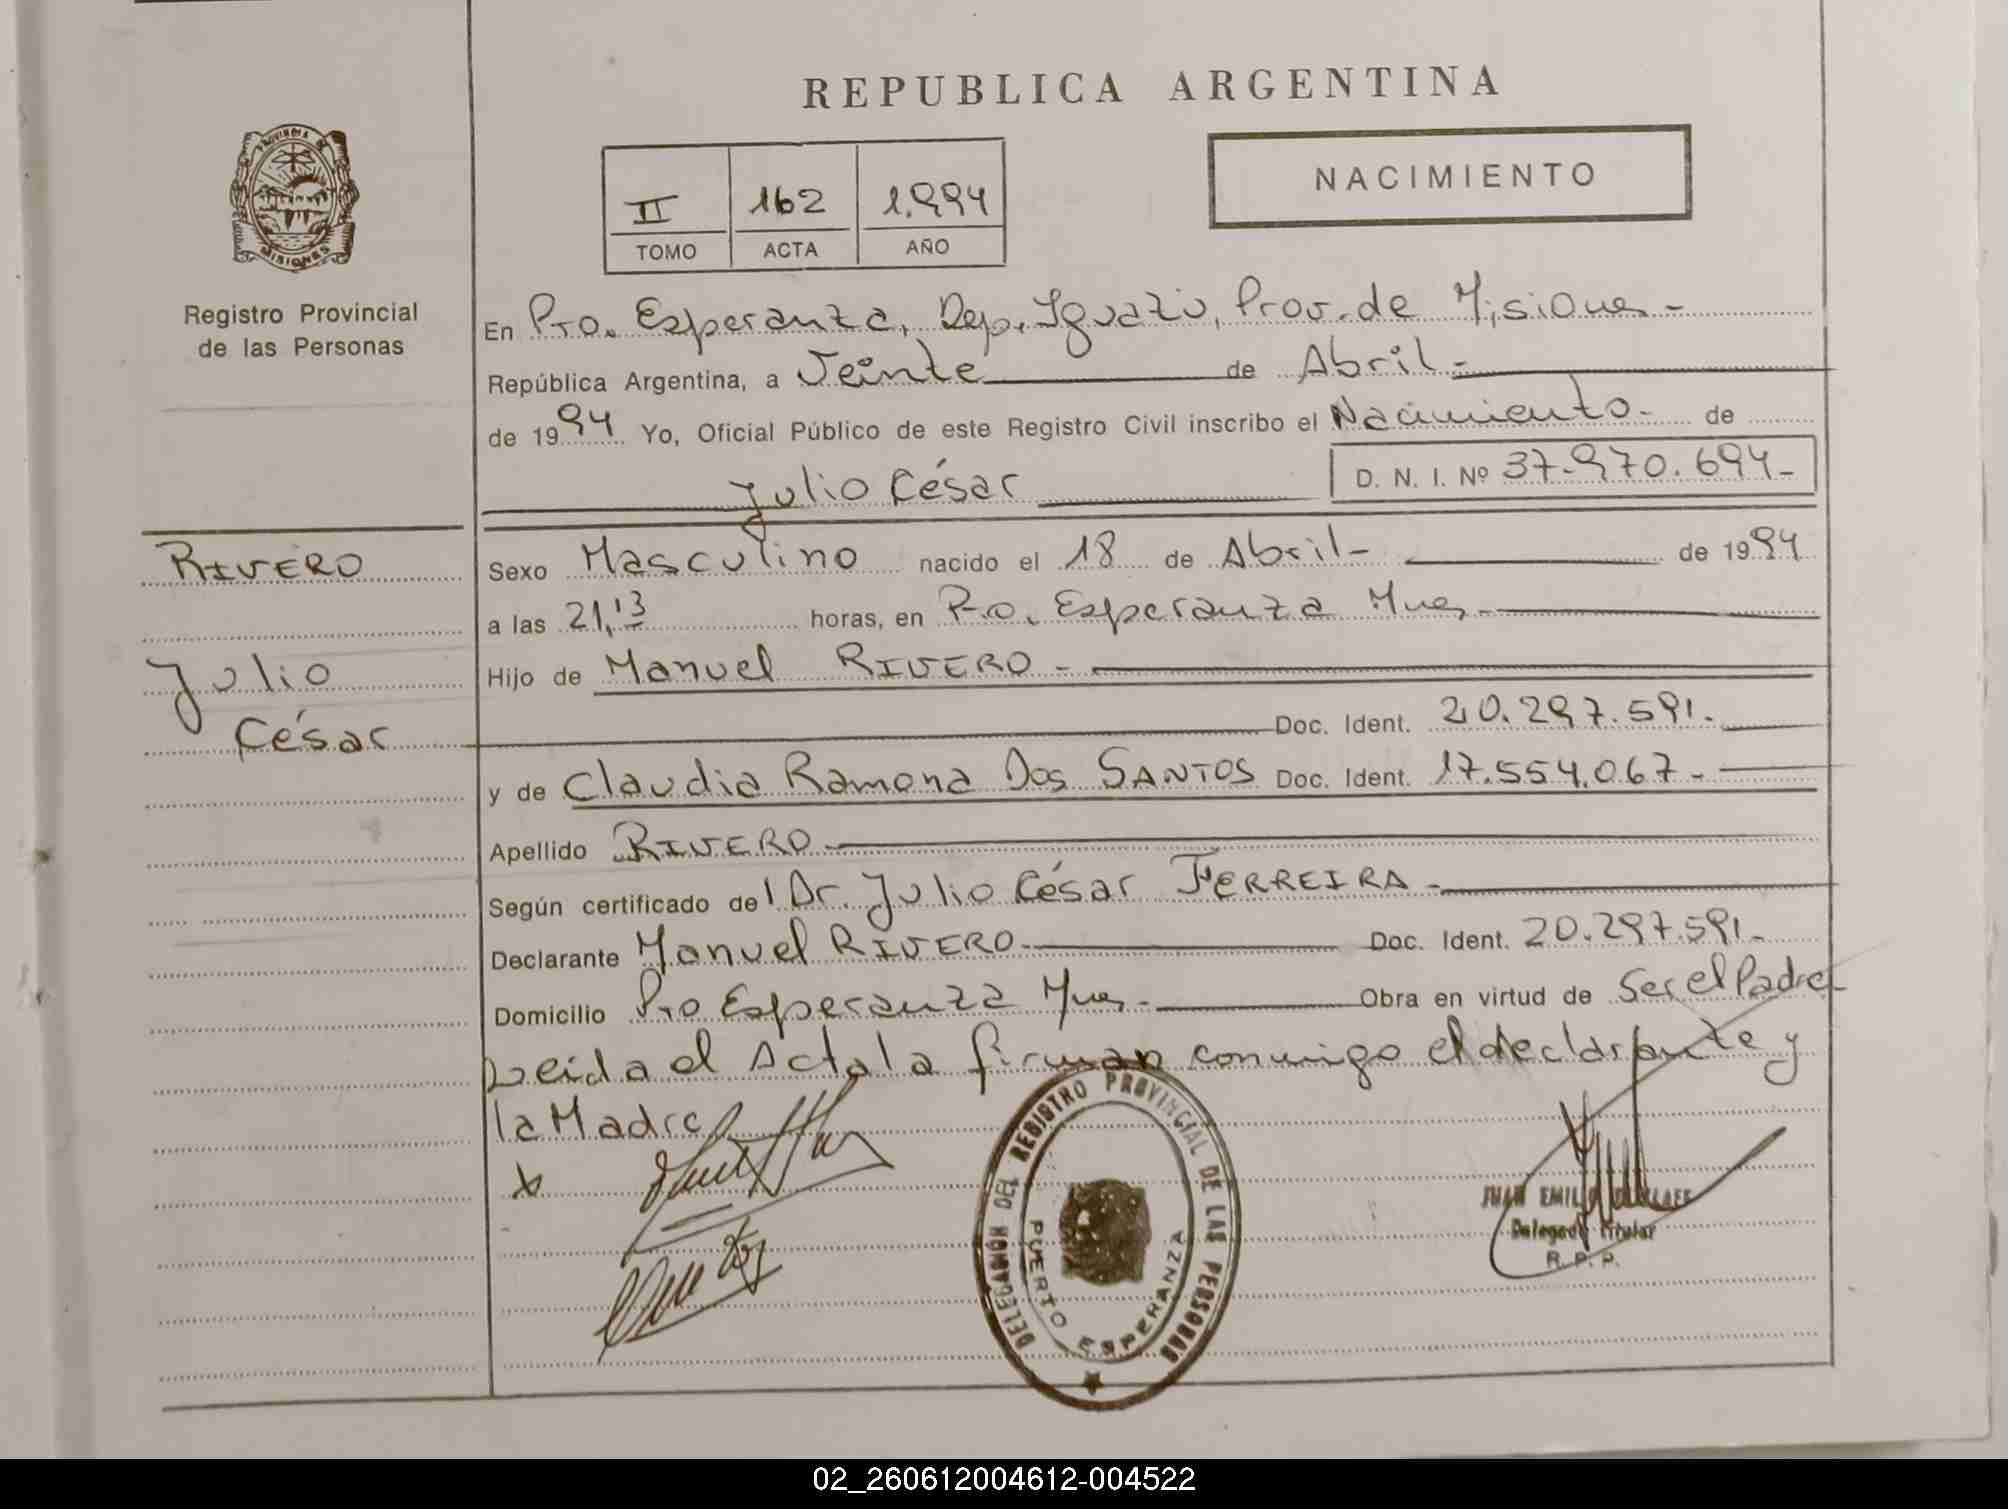 REPUBLICA ARGENTINA
PROVINCIA
MISIONES
Registro Provincial
de las Personas
II 162 1.994
TOMO ACTA AÑO
NACIMIENTO
En Pto. Esperanza, Dep. Iguazú, Prov. de Misiones -
República Argentina, a Veinte de Abril -
de 1994 Yo, Oficial Público de este Registro Civil inscribo el Nacimiento - de
Julio César D. N. I. Nº 37.970.694 -
RIVERO
Julio
César
Sexo Masculino nacido el 18 de Abril - de 1994
a las 21,13 horas, en Pto. Esperanza Mnes -
Hijo de Manuel RIVERO -
Doc. Ident. 20.297.591.
y de Claudia Ramona Dos SANTOS Doc. Ident. 17.554.067 -
Apellido RIVERO
Según certificado del Dr. Julio César FERREIRA -
Declarante Manuel RIVERO - Doc. Ident. 20.297.591 -
Domicilio Pto Esperanza Mnes - Obra en virtud de Ser el Padre
Leída el Acta la firman conmigo el declarante y
la Madre
x
DELEGACIÓN DEL REGISTRO PROVINCIAL DE LAS PERSONAS
PUERTO ESPERANZA
JUAN EMILIO
Delegado Titular
R. P. P.
02_260612004612-004522